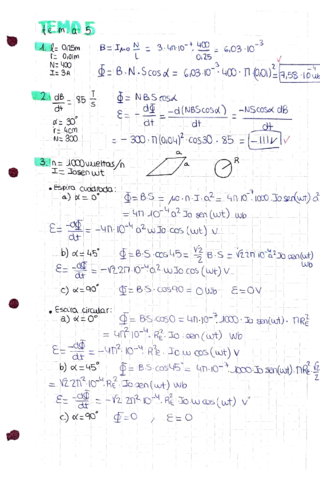 TEMA 5
1. l = 0,25m
B = I μ₀ N/l = 3·4π·10⁻⁷ · 400/0,25 = 6,03·10⁻³
r = 0,01m
N = 400
I = 3A
Φ = B·N·S cosα = 6,03·10⁻³·400·π(0,01)² = 7,58·10⁻⁴ Wb
2. dB/dt = 85 T/s
Φ = NBS cosα
ε = -dΦ/dt = -d(NBS cosα)/dt = -NS cosα dB/dt
α = 30°
r = 4cm
N = 300
= -300·π(0,04)²·cos30·85 = -111 V
3. n = 1000 vueltas/m
I = I₀ sen wt
a
a
R
• Espira cuadrada:
a) α = 0° Φ = B·S = μ₀·n·I·a² = 4π·10⁻⁷·1000 I₀ sen(wt) a²
= 4π·10⁻⁴ a² I₀ sen (wt) Wb
ε = -dΦ/dt = -4π·10⁻⁴ a² w I₀ cos (wt) V
b) α = 45° Φ = B·S·cos45 = √2/2 B·S = √2 2π·10⁻⁴ a² I₀ sen(wt) Wb
ε = -dΦ/dt = -√2 2π·10⁻⁴ a² w I₀ cos(wt) V
c) α = 90° Φ = B·S·cos90 = 0 Wb ε = 0 V
• Espira circular:
a) α = 0° Φ = B·S cos0 = 4π·10⁻⁷·1000·I₀ sen(wt)·πR_E²
= 4π²·10⁻⁴·R_E²·I₀ sen (wt) Wb
ε = -dΦ/dt = -4π²·10⁻⁴·R_E² I₀ w cos(wt) V
b) α = 45° Φ = B·S cos45° = 4π·10⁻⁷·1000·I₀ sen(wt)·πR_E² √2/2
= √2 2π²·10⁻⁴·R_E² I₀ sen(wt) Wb
ε = -dΦ/dt = -√2 2π²·10⁻⁴·R_E² I₀ w cos (wt) V
c) α = 90° Φ = 0 , ε = 0